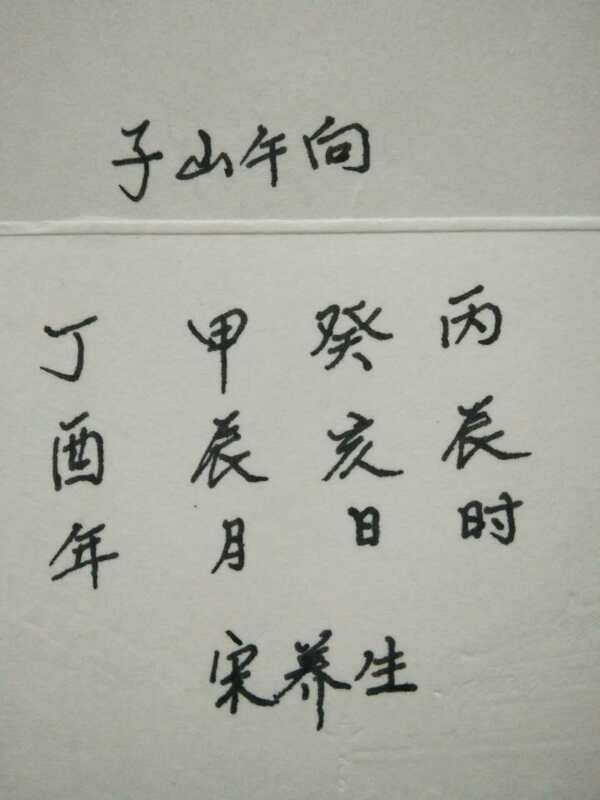 子山午向
丁 甲 癸 丙
酉 辰 亥 辰
年 月 日 时
宋养生